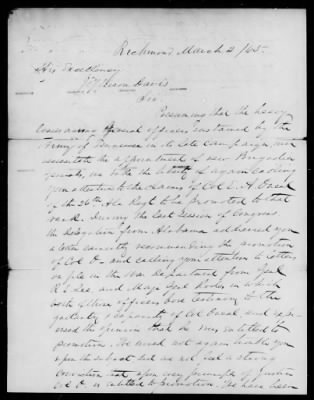 Richmond March 2/65.
His Excellency
Jefferson Davis
Sir.
Presuming that the heavy
losses among General officers sustained by the
Army of Tennessee in its late Campaign, will
necessitate the appointment of new Brigadier
Generals, we take the liberty of again calling
your attention to the claims of Col E. A. Oneal
of the 26th Ala Regt to be promoted to that
rank. During the last session of Congress
the delegation from Alabama addressed you
a letter earnestly recommending the promotion
of Col O. and calling your attention to letters
on file in the War Department from Genl
R E Lee, and Maj Genl Rodes, in which
both of these officers bore testimony to the
gallantry & capacity of Col Oneal, and exp-
ressed the opinion that he was entitled to
promotion. We would not again trouble you
upon the subject but we feel a strong
conviction that upon every principle of Justice
Col O. is entitled to promotion. He has been